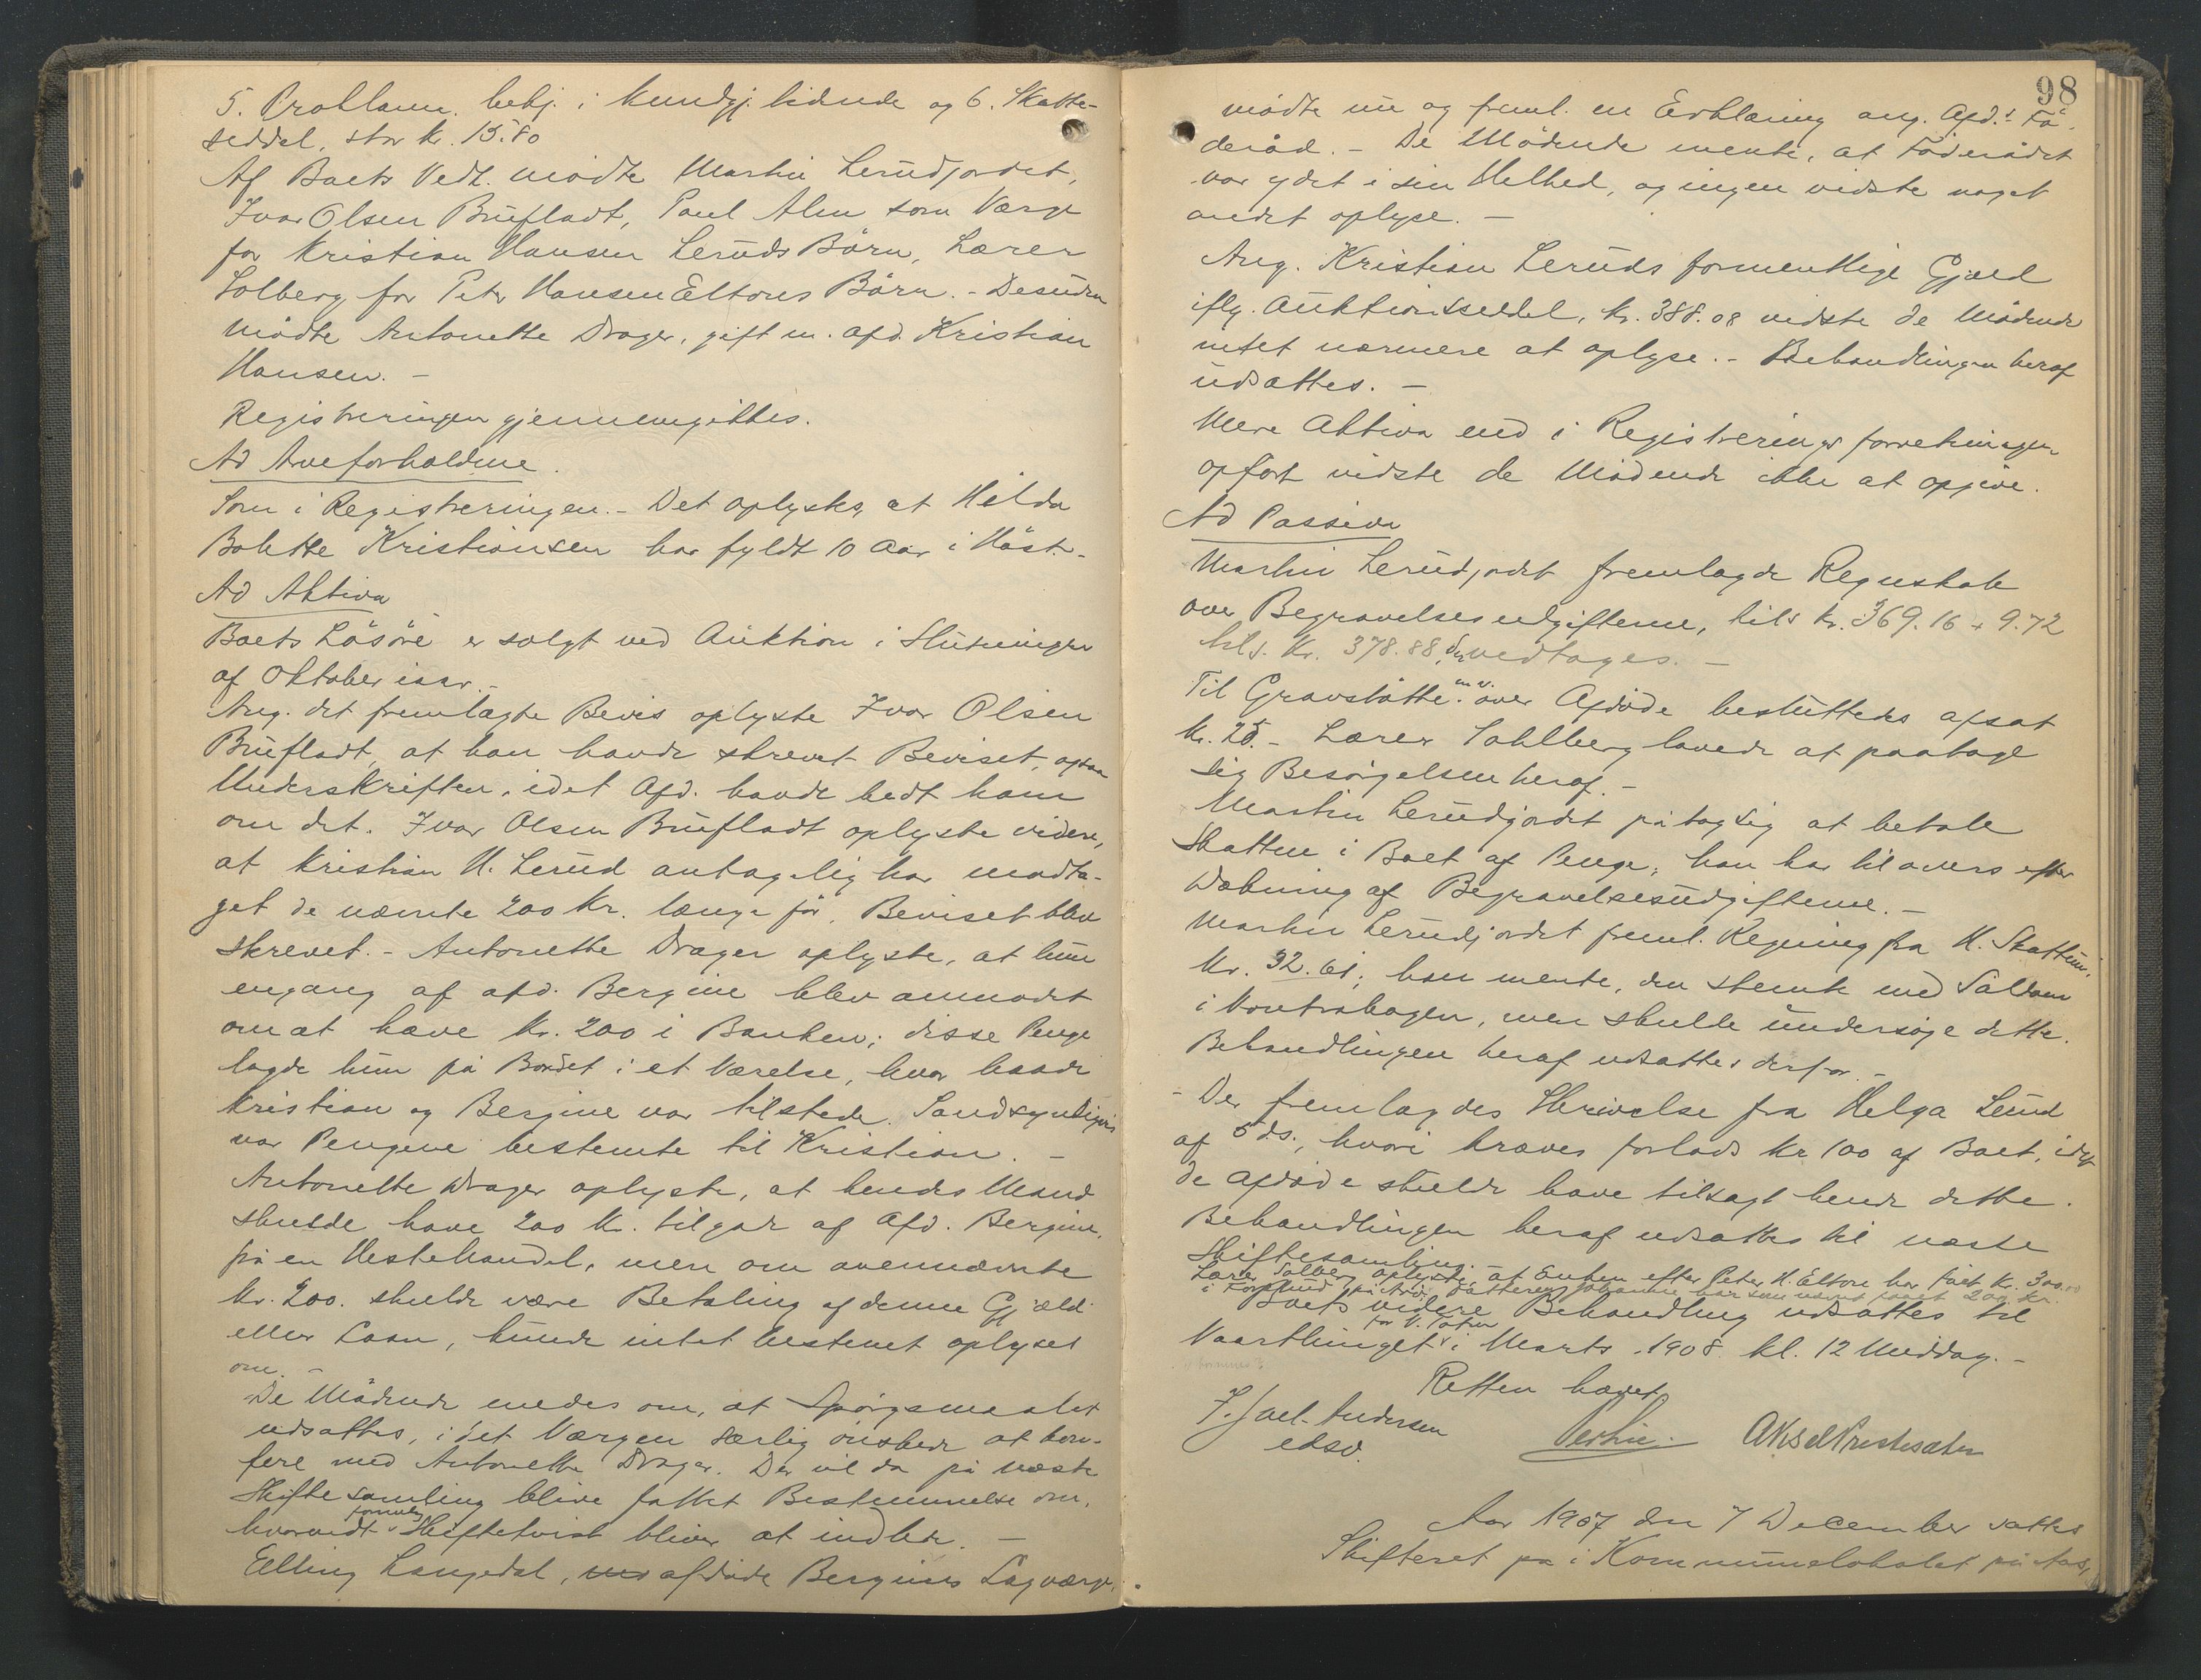 5. Proklama. bekj. i Kundgj. tidende og 6. Skatte-
seddel, stor kr. 15.80
Af Boets Vedk. mødte Martin Lerudjordet,
Ivar Olsen Brufladt, Paul Alm som Værge
for Kristian Hansen Leruds Børn, Lærer
Solberg for Peter Hansen Eltons Børn. - Desuden
mødte Antonette Drager, gift m. afd. Kristian
Hansen. -
Registreringen gjennemgikkes.
Ad Arveforholdene.
Som i Registreringen. - Det oplystes, at Hilda
Bolette Kristiansen har fyldt 10 Aar i Høst. -
Ad Aktiva
Boets Løsøre er solgt ved Auktion i Slutningen
af Oktober iaar. -
Ang. det fremlagte Bevis oplyste Ivar Olsen
Brufladt, at han havde skrevet Beviset, ogsaa
Underskriften, idet Afd. havde bedt ham
om det. Ivar Olsen Brufladt oplyste videre,
at Kristian H. Lerud antagelig har modta-
get de nævnte 200 Kr. længe før Beviset blev
skrevet. - Antonette Drager oplyste, at hun
engang af afd. Bergine blev anmodet
om at hæve Kr. 200 i Banken; disse Penge
lagde hun på Bordet i et Værelse, hvor baade
Kristian og Bergine var tilstede. Sandsynligvis
var Pengene bestemte til Kristian. -
Antonette Drager oplyste, at hendes Mand
skulde have 200 Kr. tilgode af Afd. Bergine,
på en Hestehandel, men om ovennævnte
Kr. 200. skulde være Betaling af denne Gjæld
eller Laan, kunde intet bestemt oplyses
om. -
De Mødende enedes om, at Spørgsmaalet
udsattes, idet Værgen særlig ønskede at kon-
fere med Antonette Drager. Der vil da på næste
Skiftesamling blive fattet Bestemmelse om,
hvorvidt Skiftetvist bliver at indlede. -
Elling Langedal, afdøde Bergines Lagværge,
98
mødte nu og freml. en Erklæring ang. Afd.s Fø-
deråd. - De Mødende mente, at Føderådet
var ydet i sin Helhed, og ingen vidste noget
andet oplyse. -
Ang. Kristian Leruds formentlige Gjæld
iflg. Auktionsseddel, kr. 388.08 vidste de Mødende
intet nærmere at oplyse. - Behandlingen heraf
udsattes. -
Mere Aktiva end i Registreringsforretningen
opført vidste de Mødende ikke at opgive.
Ad Passiva
Martin Lerudjordet fremlagde Regnskab
over Begravelsesudgifterne, tils kr. 369.16 + 9.72
tils. Kr. 378.88, der vedtages. -
Til Gravstøtte m.v. over Afdøde besluttedes afsat
kr. 25. - Lærer Sohlberg lovede at paatage
sig Besørgelsen heraf. -
Martin Lerudjordet påtog sig at betale
Skatten i Boet af Penge, han har tilovers efter
Dækning af Begravelsesudgifterne. -
Martin Lerudjordet freml. Regning fra H. Skattum,
Kr. 32.61; han mente, den stemte med Saldoen
i Kontrabogen, men skulde undersøge dette.
Behandlingen heraf udsattes derfor. -
- Der fremlagdes Skrivelse fra Helga Lerud
af 5 ds., hvori kræves forlods Kr 100 af Boet, idet
de Afdøde skulde have tilsagt hende dette.
Behandlingen heraf udsattes til næste
Skiftesamling. -
Lærer Solberg oplyste, at Enken efter Peter H. Elton har fået Kr. 300.00
i Forskud på Arv. Datteren Johanne har som nævnt faaet 200 Kr.
Boets videre Behandling udsattes til
Vaarthinget i Marts 1908 kl. 12 Middag. -
Retten hævet
Joel-Andersen
edsv.
Aksel Prestesæter
Aar 1907 den 7 December sattes
Skifteret på i Kommunelokalet på Aas,